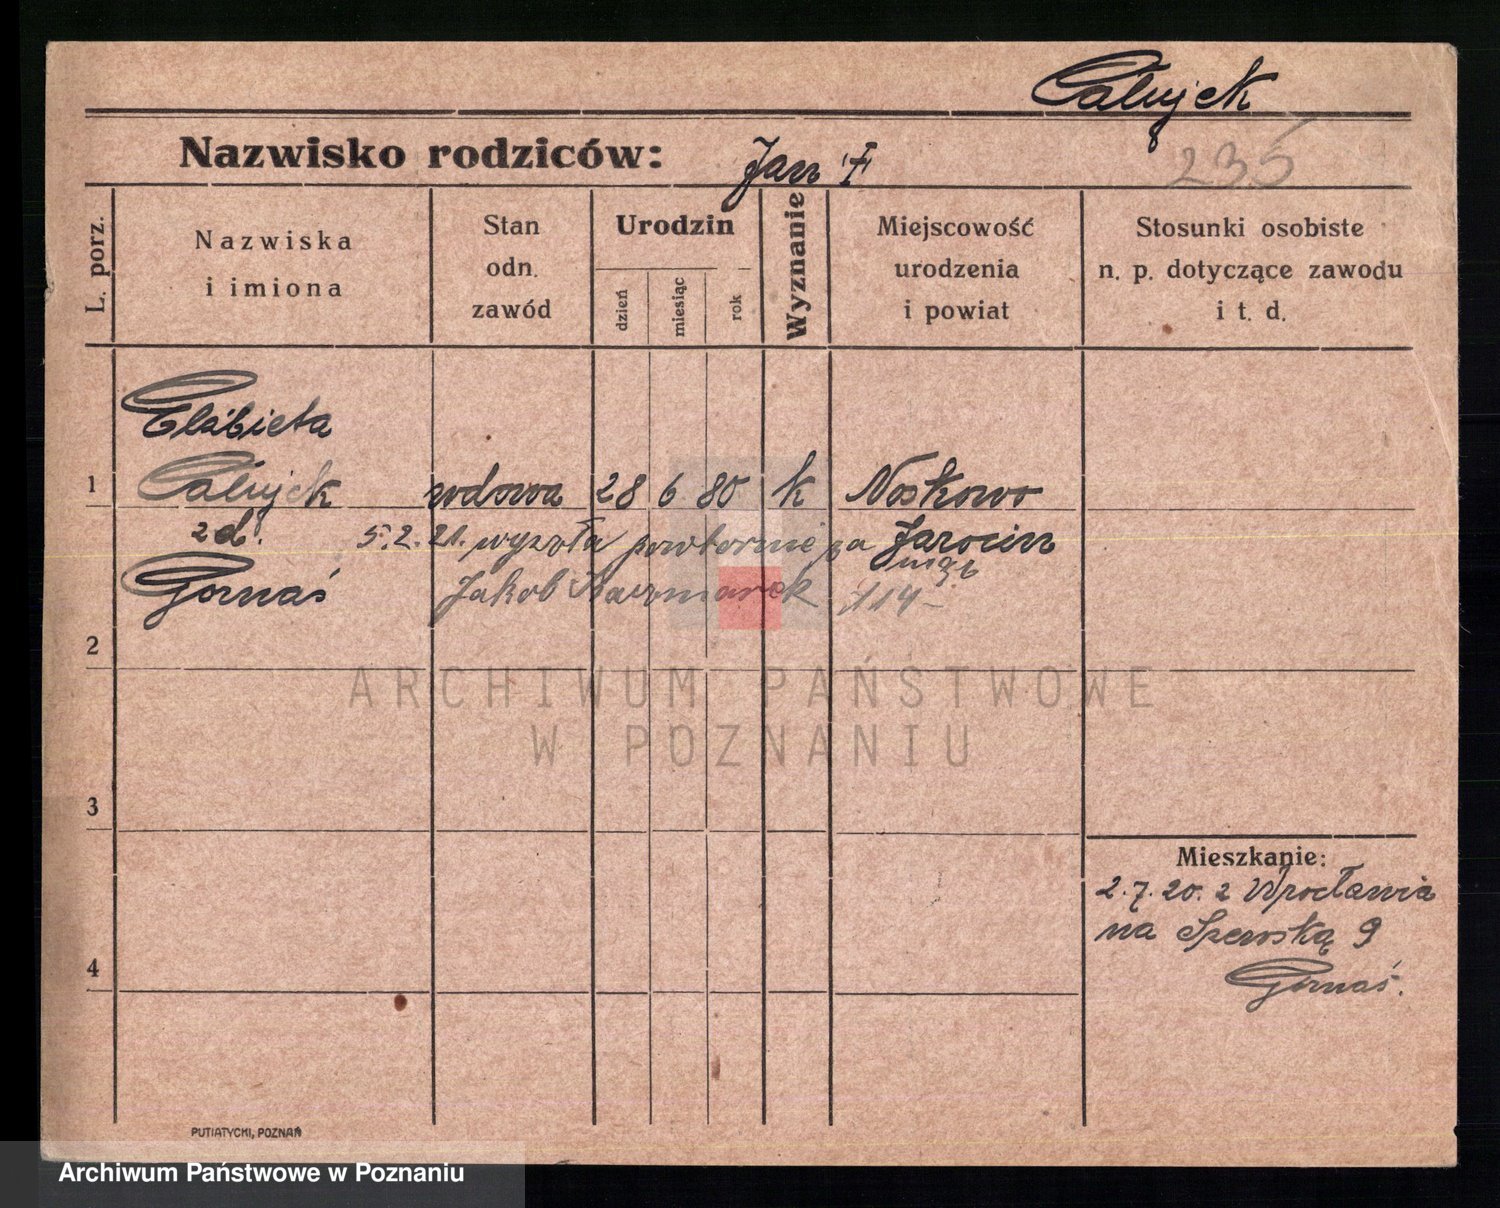 Całujek
Nazwisko rodziców: Jan
235
L. porz.
Nazwiska
i imiona
Stan
odn.
zawód
Urodzin
dzień
miesiąc
rok
Wyznanie
Miejscowość
urodzenia
i powiat
Stosunki osobiste
n. p. dotyczące zawodu
i t. d.
Elżbieta
1 Całujek wdowa 28 6 80 k Noskowo
zd. 5.2.21. wyszła powtornie za Jarocin
mąż
Gornaś Jakob Kaczmarek 114-
2
ARCHIWUM PAŃSTWOWE
W POZNANIU
3
Mieszkanie:
2.7.20. z Wrocławia
na 9
4
Gornaś.
PUTIATYCKI, POZNAŃ
Archiwum Państwowe w Poznaniu